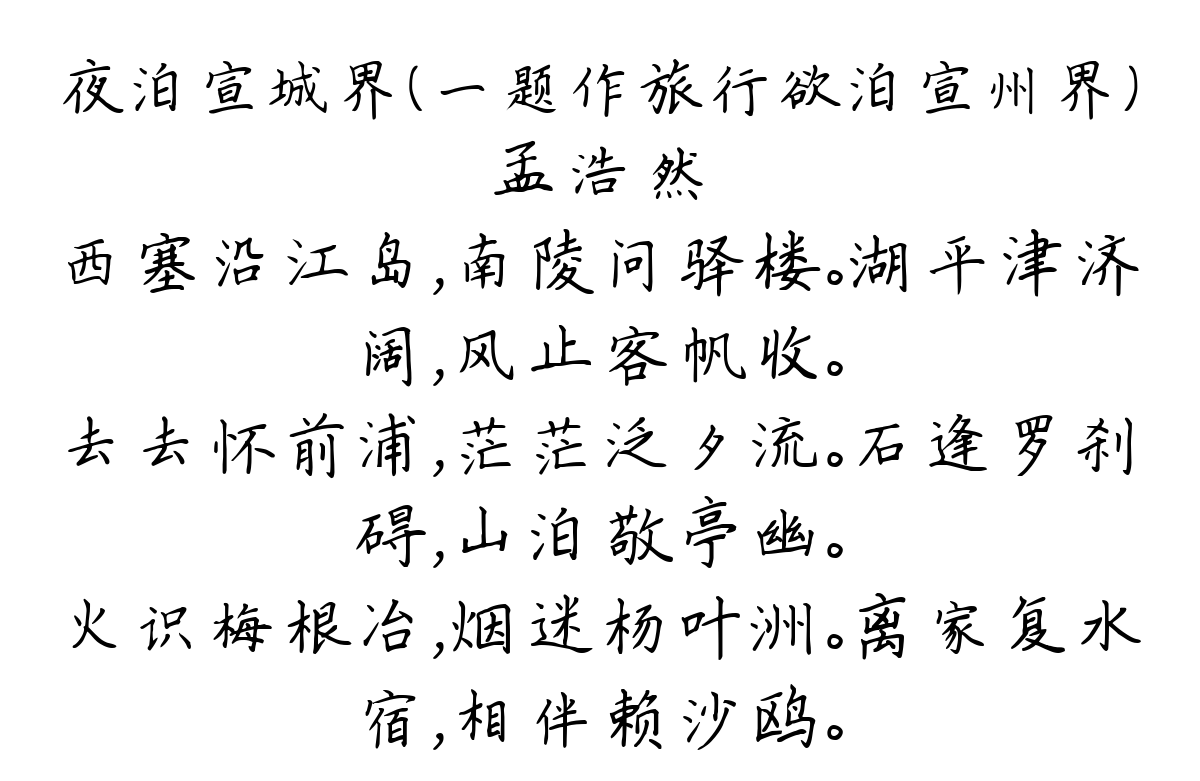 夜泊宣城界(一题作旅行欲泊宣州界)
孟浩然
西塞沿江岛,南陵问驿楼。湖平津济
阔,风止客帆收。
去去怀前浦,茫茫泛夕流。石逢罗刹
碍,山泊敬亭幽。
火识梅根冶,烟迷杨叶洲。离家复水
宿,相伴赖沙鸥。